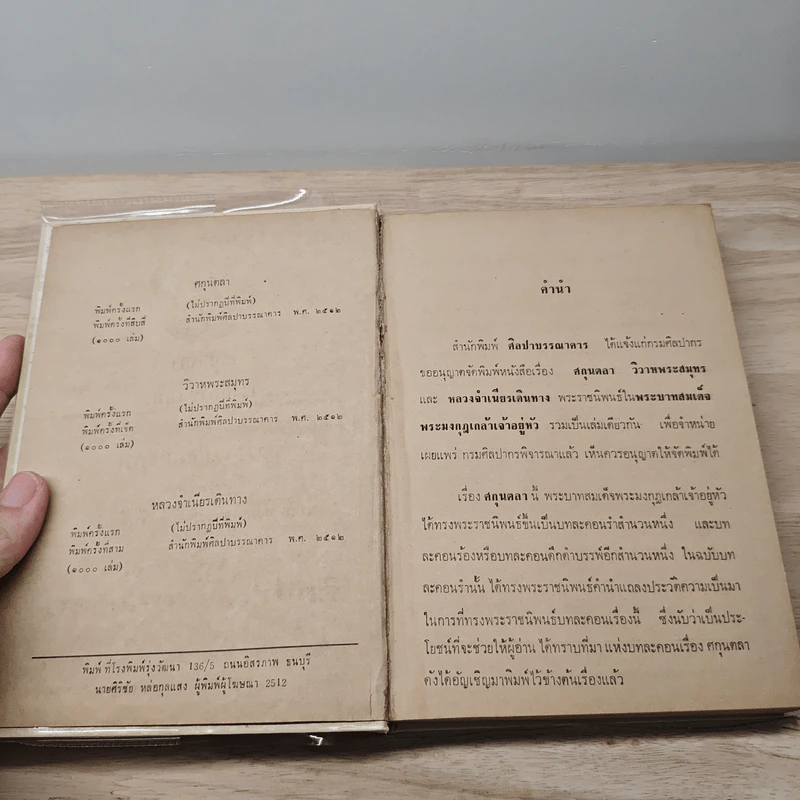 ศกุนตลา
พิมพ์ครั้งแรก (ไม่ปรากฏปีที่พิมพ์)
พิมพ์ครั้งที่สิบสี่ สำนักพิมพ์ศิลปาบรรณาคาร พ.ศ. ๒๕๑๒
(๑๐๐๐ เล่ม)
วิวาหพระสมุทร
พิมพ์ครั้งแรก (ไม่ปรากฏปีที่พิมพ์)
พิมพ์ครั้งที่เจ็ด สำนักพิมพ์ศิลปาบรรณาคาร พ.ศ. ๒๕๑๒
(๑๐๐๐ เล่ม)
หลวงจำเนียรเดินทาง
พิมพ์ครั้งแรก (ไม่ปรากฏปีที่พิมพ์)
พิมพ์ครั้งที่สาม สำนักพิมพ์ศิลปาบรรณาคาร พ.ศ. ๒๕๑๒
(๑๐๐๐ เล่ม)
พิมพ์ ที่โรงพิมพ์รุ่งวัฒนา 136/5 ถนนอิสรภาพ ธนบุรี
นายศิริชัย หล่อกุลแสง ผู้พิมพ์ผู้โฆษณา 2512
คำนำ
สำนักพิมพ์ ศิลปาบรรณาคาร ได้แจ้งแก่กรมศิลปากร
ขออนุญาตจัดพิมพ์หนังสือเรื่อง ศกุนตลา วิวาหพระสมุทร
และ หลวงจำเนียรเดินทาง พระราชนิพนธ์ในพระบาทสมเด็จ
พระมงกุฎเกล้าเจ้าอยู่หัว รวมเป็นเล่มเดียวกัน เพื่อจำหน่าย
เผยแพร่ กรมศิลปากรพิจารณาแล้ว เห็นควรอนุญาตให้จัดพิมพ์ได้
เรื่อง ศกุนตลา นี้ พระบาทสมเด็จพระมงกุฎเกล้าเจ้าอยู่หัว
ได้ทรงพระราชนิพนธ์ขึ้นเป็นบทละคอนรำสำนวนหนึ่ง และบท
ละคอนร้องหรือบทละคอนดึกดำบรรพ์อีกสำนวนหนึ่ง ในฉบับบท
ละคอนรำนั้น ได้ทรงพระราชนิพนธ์คำนำแถลงประวัติความเป็นมา
ในการที่ทรงพระราชนิพนธ์บทละคอนเรื่องนี้ ซึ่งนับว่าเป็นประ-
โยชน์ที่จะช่วยให้ผู้อ่าน ได้ทราบที่มา แห่งบทละคอนเรื่อง ศกุนตลา
ดังได้อัญเชิญมาพิมพ์ไว้ข้างต้นเรื่องแล้ว